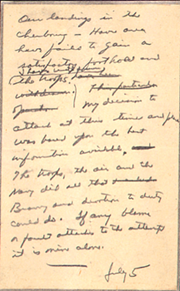 Our landings in the
Cherbourg - Havre area
have failed to gain a
satisfactory foothold and
the troops
This particular
My decision to
attack at this time and place
was based upon the best
information available,
The troops, the air and the
Navy did all that
Bravery and devotion to duty
could do. If any blame
or fault attaches to the attempt
it is mine alone.
July 5